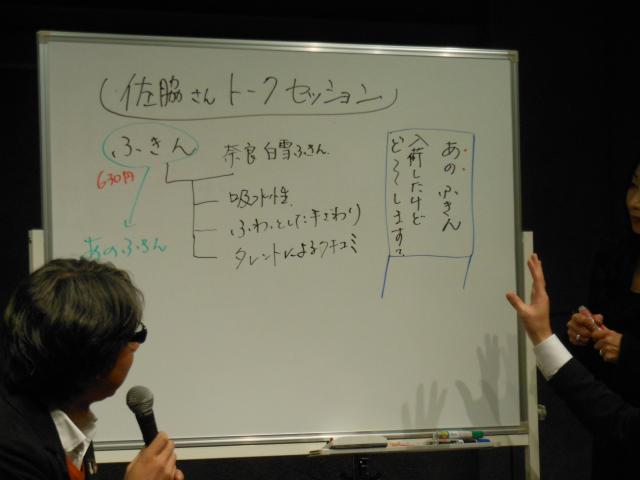 佐脇さん トークセッション
ふきん
630円
あのふきん
奈良 白雪ふきん
吸水性
ふわっとした手ざわり
タレントによるクチコミ
あのふきん
入荷したけど
ど〜しますぅ?